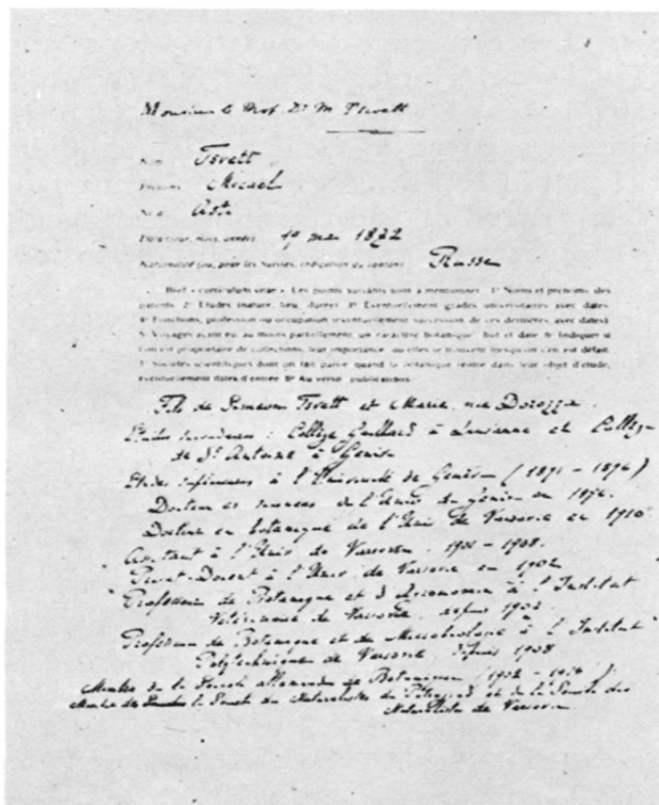 Monsieur le Prof. Dr M. Tswett
Nom Tsvett
Prénom Micael
Né à Asti
1872
Nationalité (ou, pour les Suisses, indication du canton) Russe
Bref « curriculum vitae ». Les points suivants sont à mentionner : 1° Noms et prénoms des
parents. 2° Etudes (nature, lieu, durée). 3° Eventuellement grades universitaires avec dates.
4° Fonctions, profession ou occupation (éventuellement succession de ces dernières, avec dates).
5° Voyages ayant eu, au moins partiellement, un caractère botanique : but et date. 6° Indiquer si
l'on est propriétaire de collections, leur importance, où elles se trouvent lorsqu'on s'en est défait.
7° Sociétés scientifiques dont on fait partie quand la botanique rentre dans leur objet d'étude,
éventuellement dates d'entrée. 8° Au verso : publications.
Fils de Tsvett et Marie, née Dorozza.
Etudes secondaires : Collège Gaillard à Lausanne et Collège
de St Antoine à Genève
Etudes supérieures à l'Université de Genève (1891 – 1896)
Docteur ès sciences de l'Univ. de Genève en 1896.
Docteur en botanique de l'Univ. de Varsovie en 1910.
Assistant à l'Univ. de Varsovie, 1901 – 1908.
Privat-Docent à l'Univ. de Varsovie en 1902
Professeur de Botanique et d'Agronomie à l'Institut
Vétérinaire de Varsovie, depuis 1907.
Professeur de Botanique et de à l'Institut
Polytechnique de Varsovie, depuis 1908
Membre de la Société allemande de Botanique (1902 – 1914).
Membre de la Société des Naturalistes de et de la Société des
Naturalistes de Varsovie